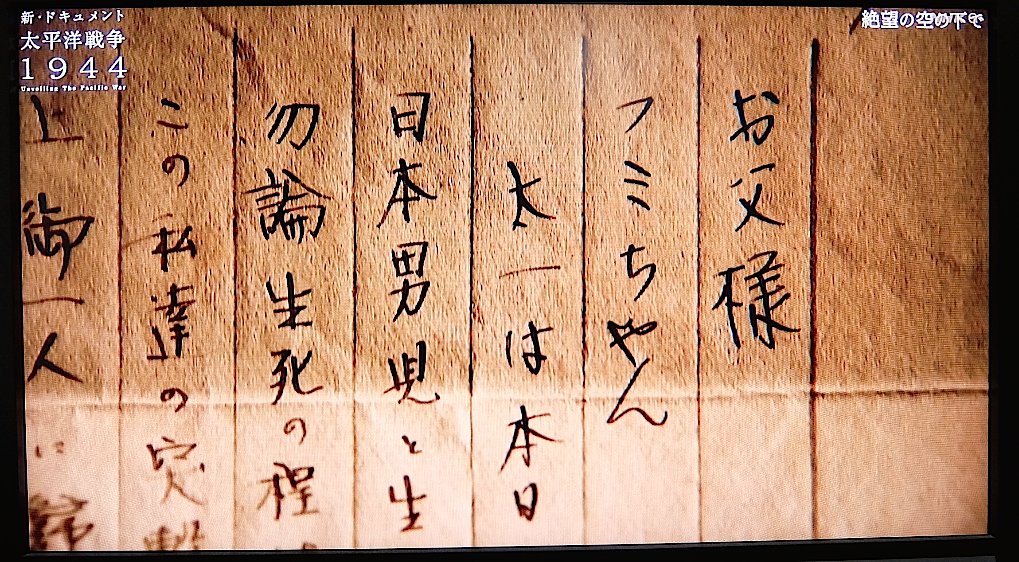 新・ドキュメント
太平洋戦争
1944
Unveiling The Pacific War
絶望の空の下で
お父様
フミちやん
太一は本日
日本男児と生
勿論生死の程
この私達の突撃
上御一人に帰